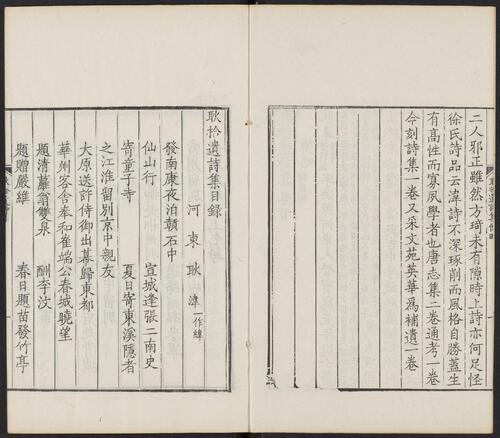 二人邪正雖然方琦未有隙時上詩亦何足怪
徐氏詩品云湋詩不深琢削而風格自勝蓋生
有高性而寡夙學者也唐志集二卷通考一卷
今刻詩集一卷又采文苑英華爲補遺一卷
耿拾遺詩集目錄
河東耿湋一作緯
發南康夜泊灨石中
仙山行 宣城逢張二南史
寄童子寺 夏日寄東溪隱者
之江淮留別京中親友
大原送許侍御出幕歸東都
華州客舍奉和崔端公春城曉望
題清蘿翁雙泉 酬李汶
題贈嚴維 春日題苗發竹亭